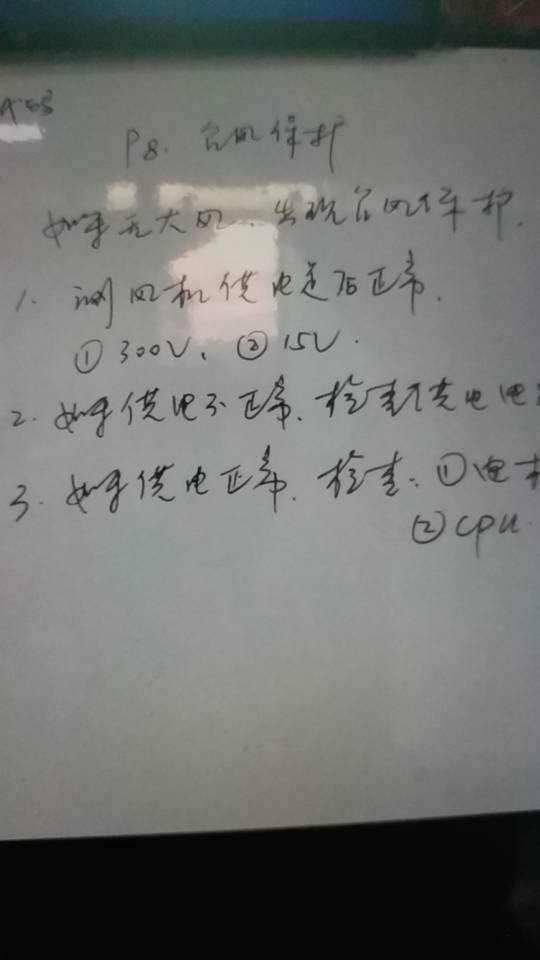 P8. 台风保护
如果无大风、出现台风保护.
1. 测风机供电是否正常.
① 300V、② 15V.
2. 如果供电不正常. 检查供电电
3. 如果供电正常. 检查: ① 电
② CPU.